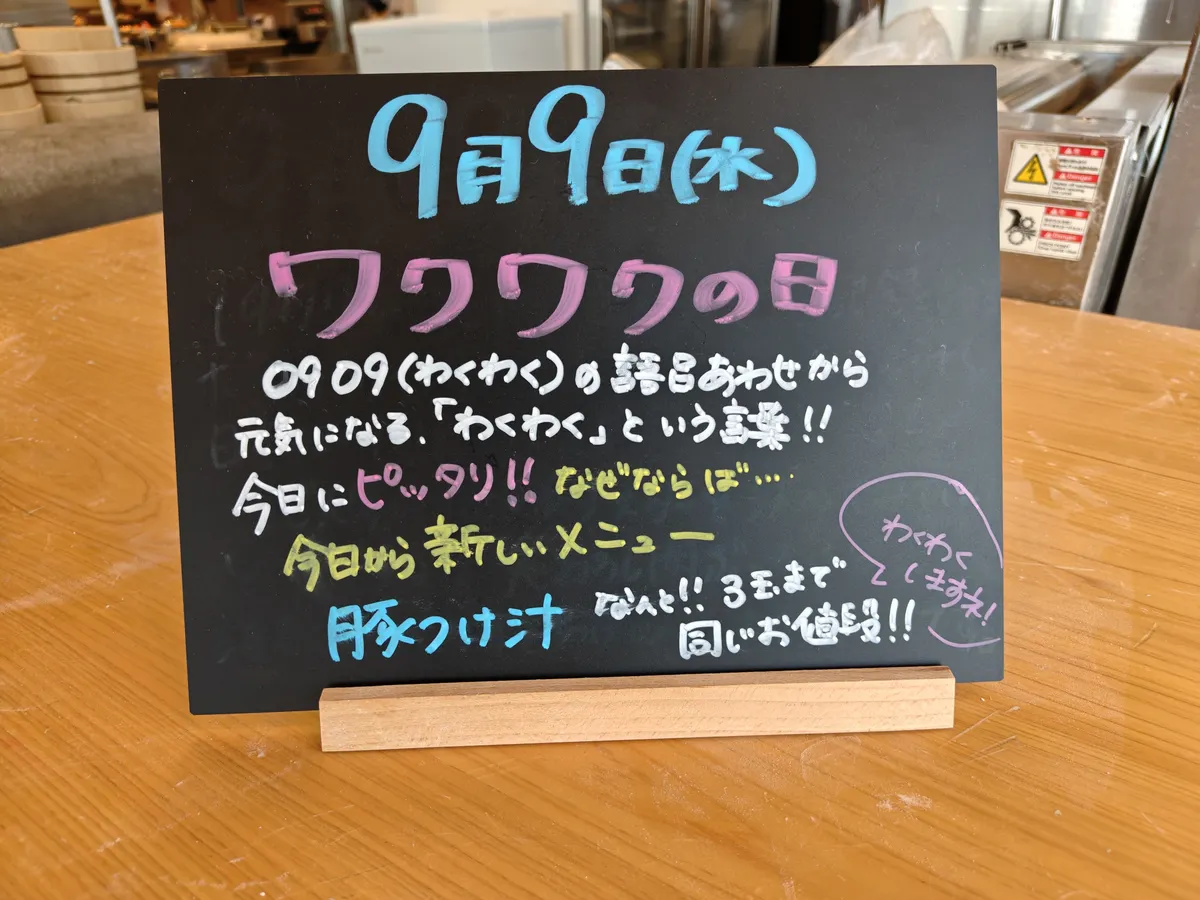 9月9日(水)
ワクワクの日
0909(わくわく)の語呂あわせから
元気になる、「わくわく」という言葉!!
今日にピッタリ!! なぜならば…
今日から新しいメニュー
豚つけ汁
なんと!! 3玉まで
同じお値段!!
わくわく
しますネ!
Danger
Danger